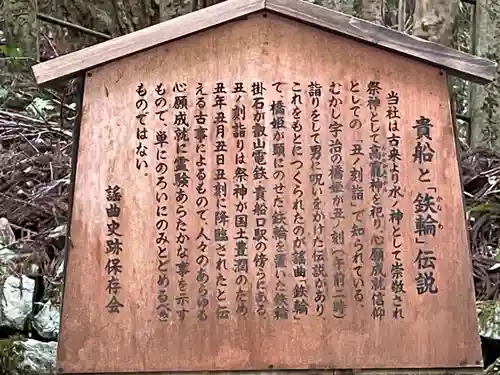 貴船と「鉄輪」伝説
かなわ
当社は古来より水ノ神として崇敬され
祭神として高龗神を祀り、心願成就信仰
としての「丑ノ刻詣」で知られている。
むかし宇治の橋姫が丑ノ刻(午前二時)
詣りをして男に呪いをかけた伝説があり、
これをもとにつくられたのが謡曲「鉄輪」
で、橋姫が頭にのせた鉄輪を置いた「鉄輪
掛石」が叡山電鉄・貴船口駅の傍らにある。
丑ノ刻詣りは祭神が国土豊潤のため、
丑年丑月丑日丑刻に降臨されたと伝
える古事によるもので、人々のあらゆる
心願成就に霊験あらたかな事を示す
もので、単にのろいにのみとどめるべき
ものではない。
謡曲史跡保存会